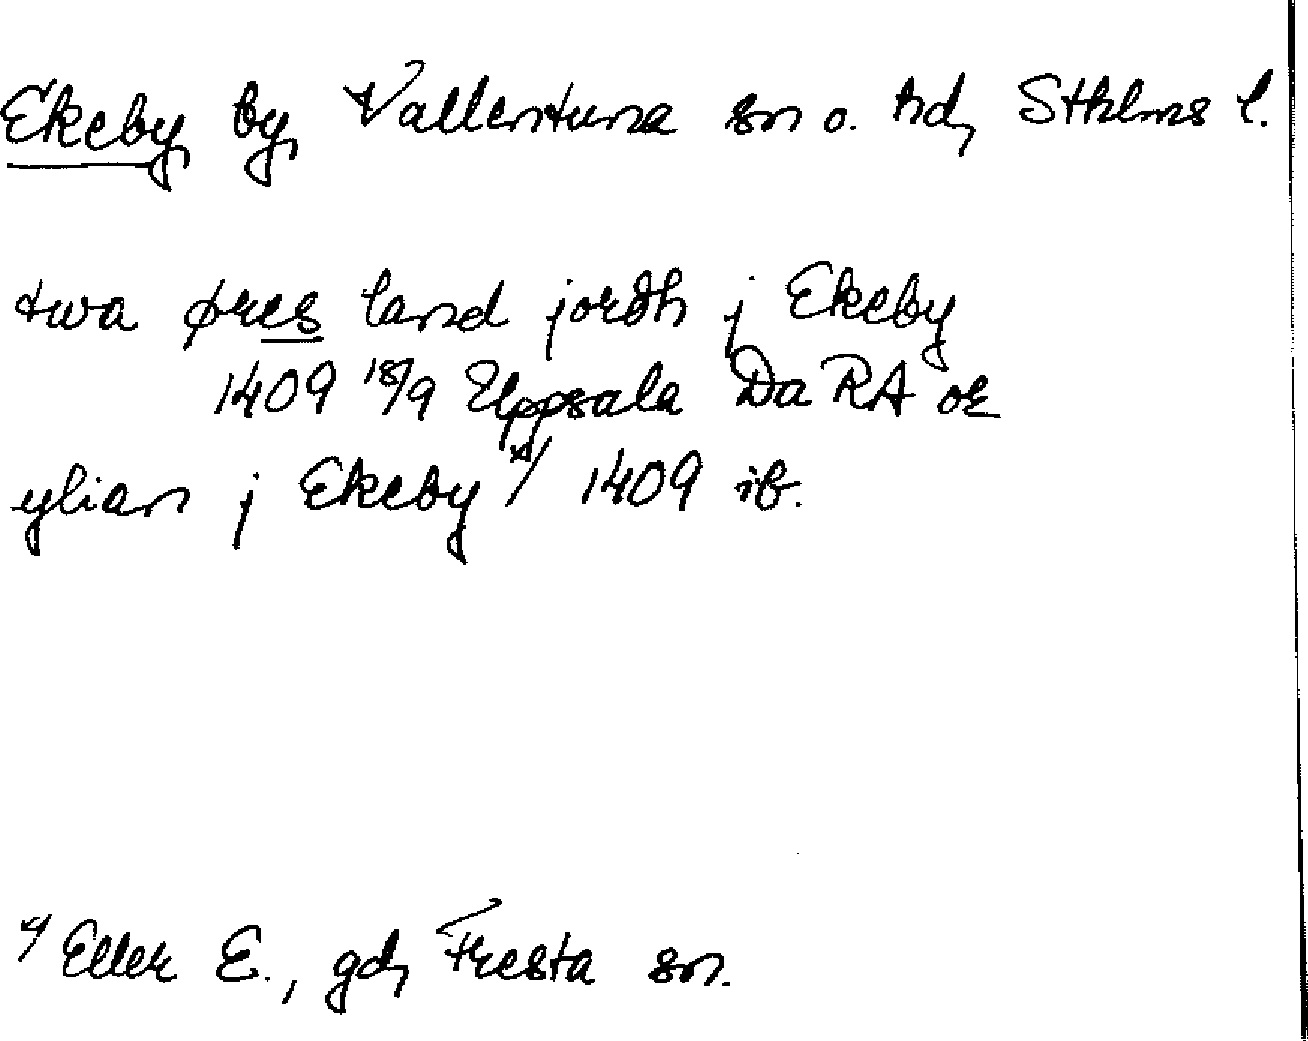 Ekeby by, Vallentuna sn o. hd, Sthlms l.
twa øres land jordh j Ekeby
1409 18/9 Uppsala Da RA or
ylian j Ekeby x/ 1409 ib.
x/ Eller E., gd, Fresta sn.